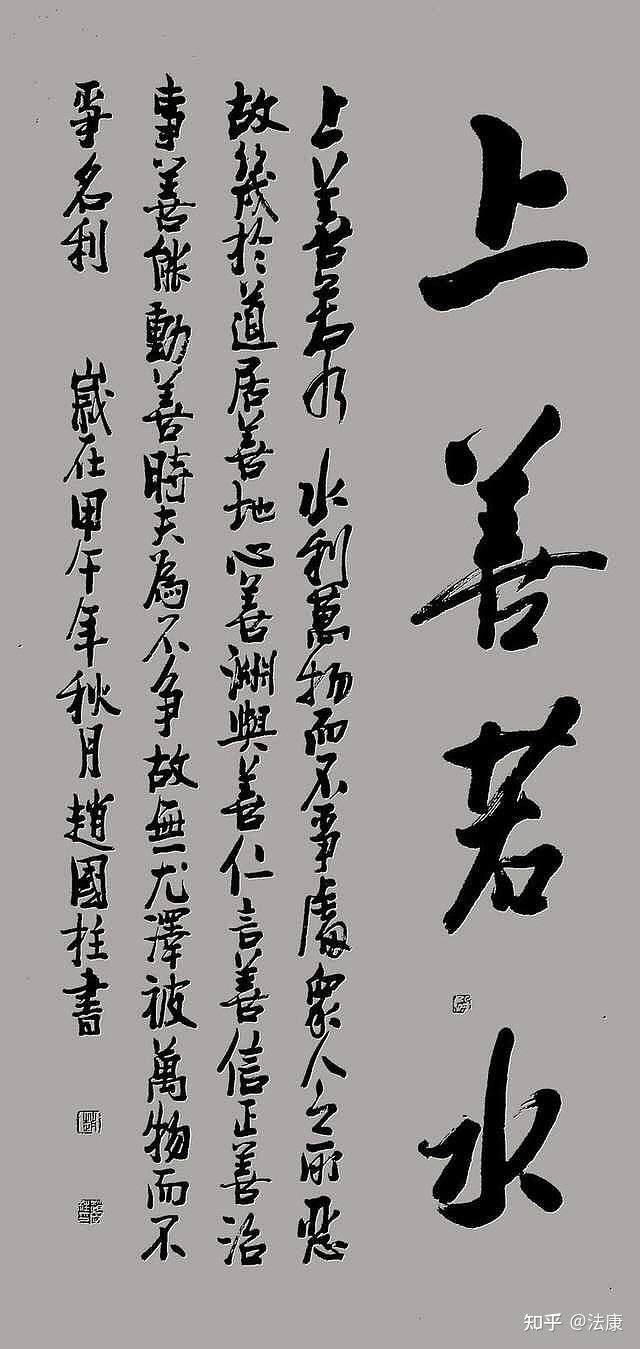 上善若水
上善若水 水利萬物而不爭處衆人之所惡
故幾於道居善地心善淵與善仁言善信正善治
事善能動善時夫為不争故無尤澤被萬物而不
爭名利 歲在甲午年秋月趙國柱書
知乎 @法康